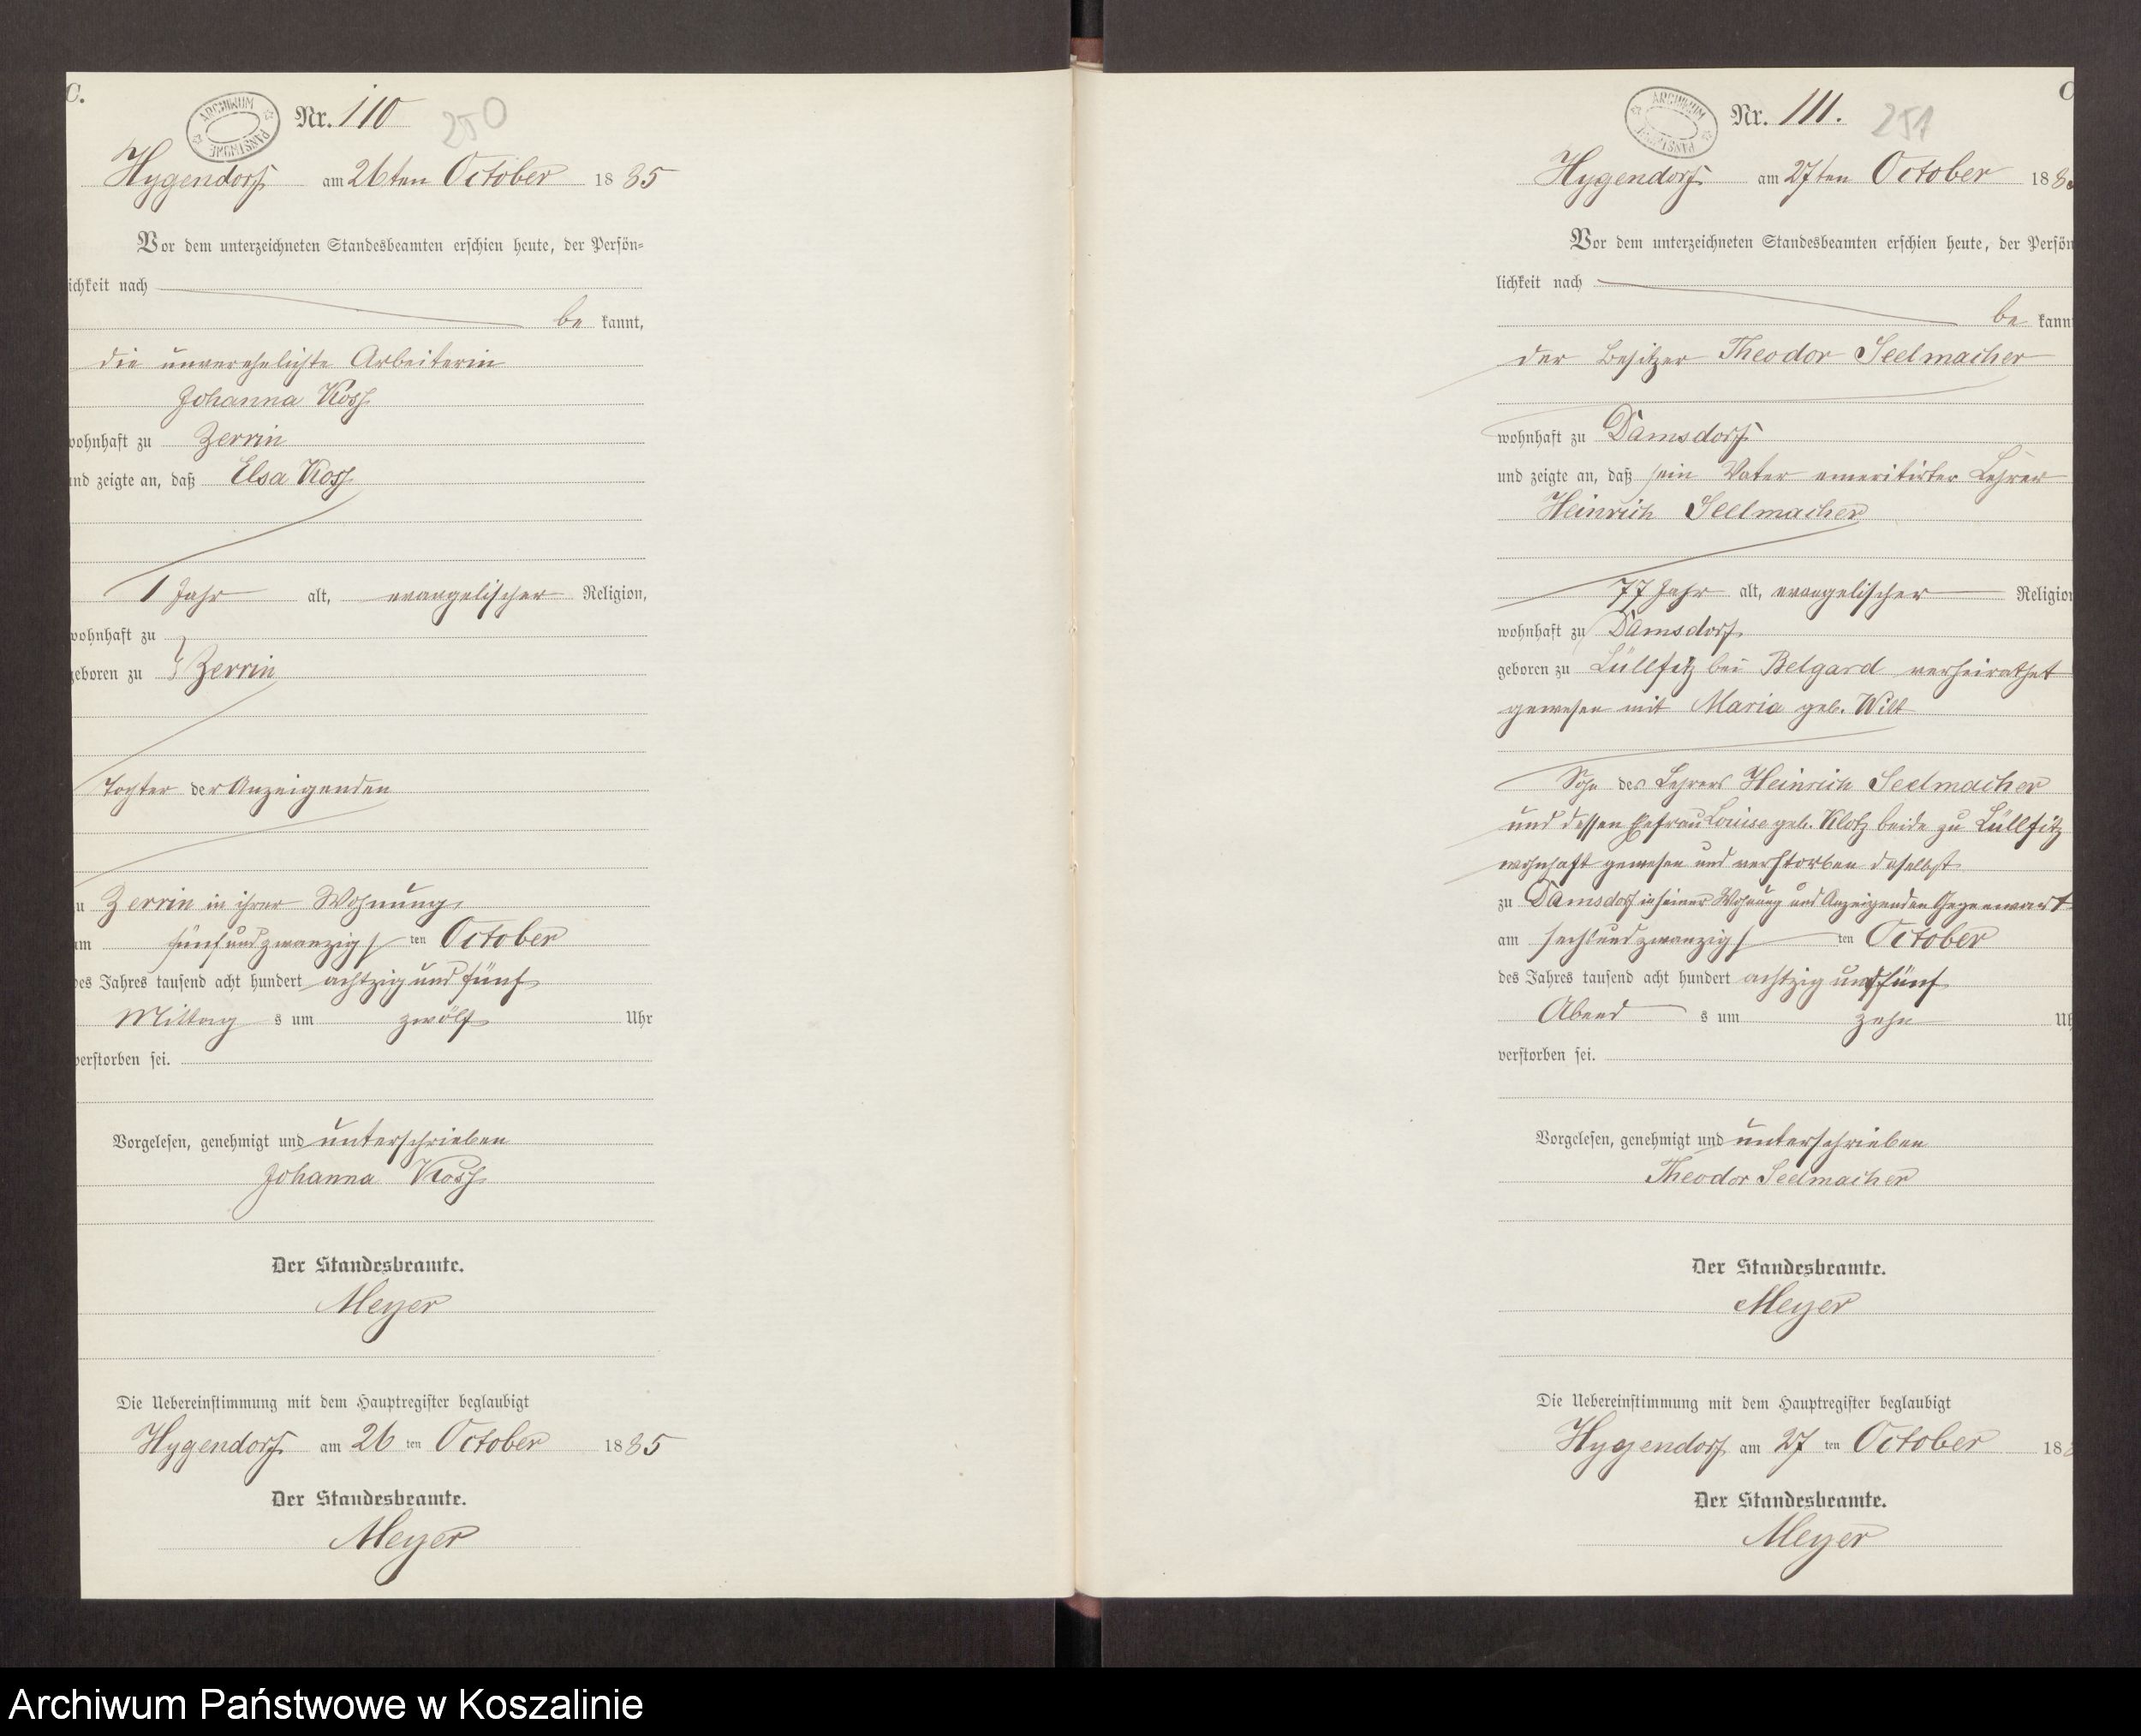 C.
ARCHIWUM PAŃSTWOWE
Nr. 110
250
Hygendorf am 26ten October 1885
Vor dem unterzeichneten Standesbeamten erschien heute, der Persön-
ichkeit nach
be kannt,
die unverehelichte Arbeiterin
Johanna Koss
wohnhaft zu Zerrin
und zeigte an, daß Elsa Koss
1 Jahr alt, evangelischer Religion,
wohnhaft zu
geboren zu Zerrin
Tochter der Anzeigenden
zu Zerrin in ihrer Wohnung
am fünfundzwanzigsten October
des Jahres tausend acht hundert achtzig und fünf
Mittags um zwölf Uhr
verstorben sei.
Vorgelesen, genehmigt und unterschrieben
Johanna Koss
Der Standesbeamte.
Meyer
Die Uebereinstimmung mit dem Hauptregister beglaubigt
Hygendorf am 26 ten October 1885
Der Standesbeamte.
Meyer
C
ARCHIWUM PAŃSTWOWE
Nr. 111.
251
Hygendorf am 27ten October 188
Vor dem unterzeichneten Standesbeamten erschien heute, der Persön
lichkeit nach
be kann
der Besitzer Theodor Seelmacher
wohnhaft zu Damsdorf
und zeigte an, daß sein Vater emeritirter Lehrer
Heinrich Seelmacher
77 Jahr alt, evangelischer Religion
wohnhaft zu Damsdorf
geboren zu Lüllfitz bei Belgard verheirathet
gewesen mit Maria geb. Wilt
Sohn des Lehrers Heinrich Seelmacher
und dessen Ehefrau Louise geb. Klotz beide zu Lüllfitz
wohnhaft gewesen und verstorben daselbst
zu Damsdorf in seiner Wohnung und Anzeigenden Gegenwart
am sechsundzwanzigsten October
des Jahres tausend acht hundert achtzig und fünf
Abends um zehn Uh
verstorben sei.
Vorgelesen, genehmigt und unterschrieben
Theodor Seelmacher
Der Standesbeamte.
Meyer
Die Uebereinstimmung mit dem Hauptregister beglaubigt
Hygendorf am 27 ten October 188
Der Standesbeamte.
Meyer
Archiwum Państwowe w Koszalinie